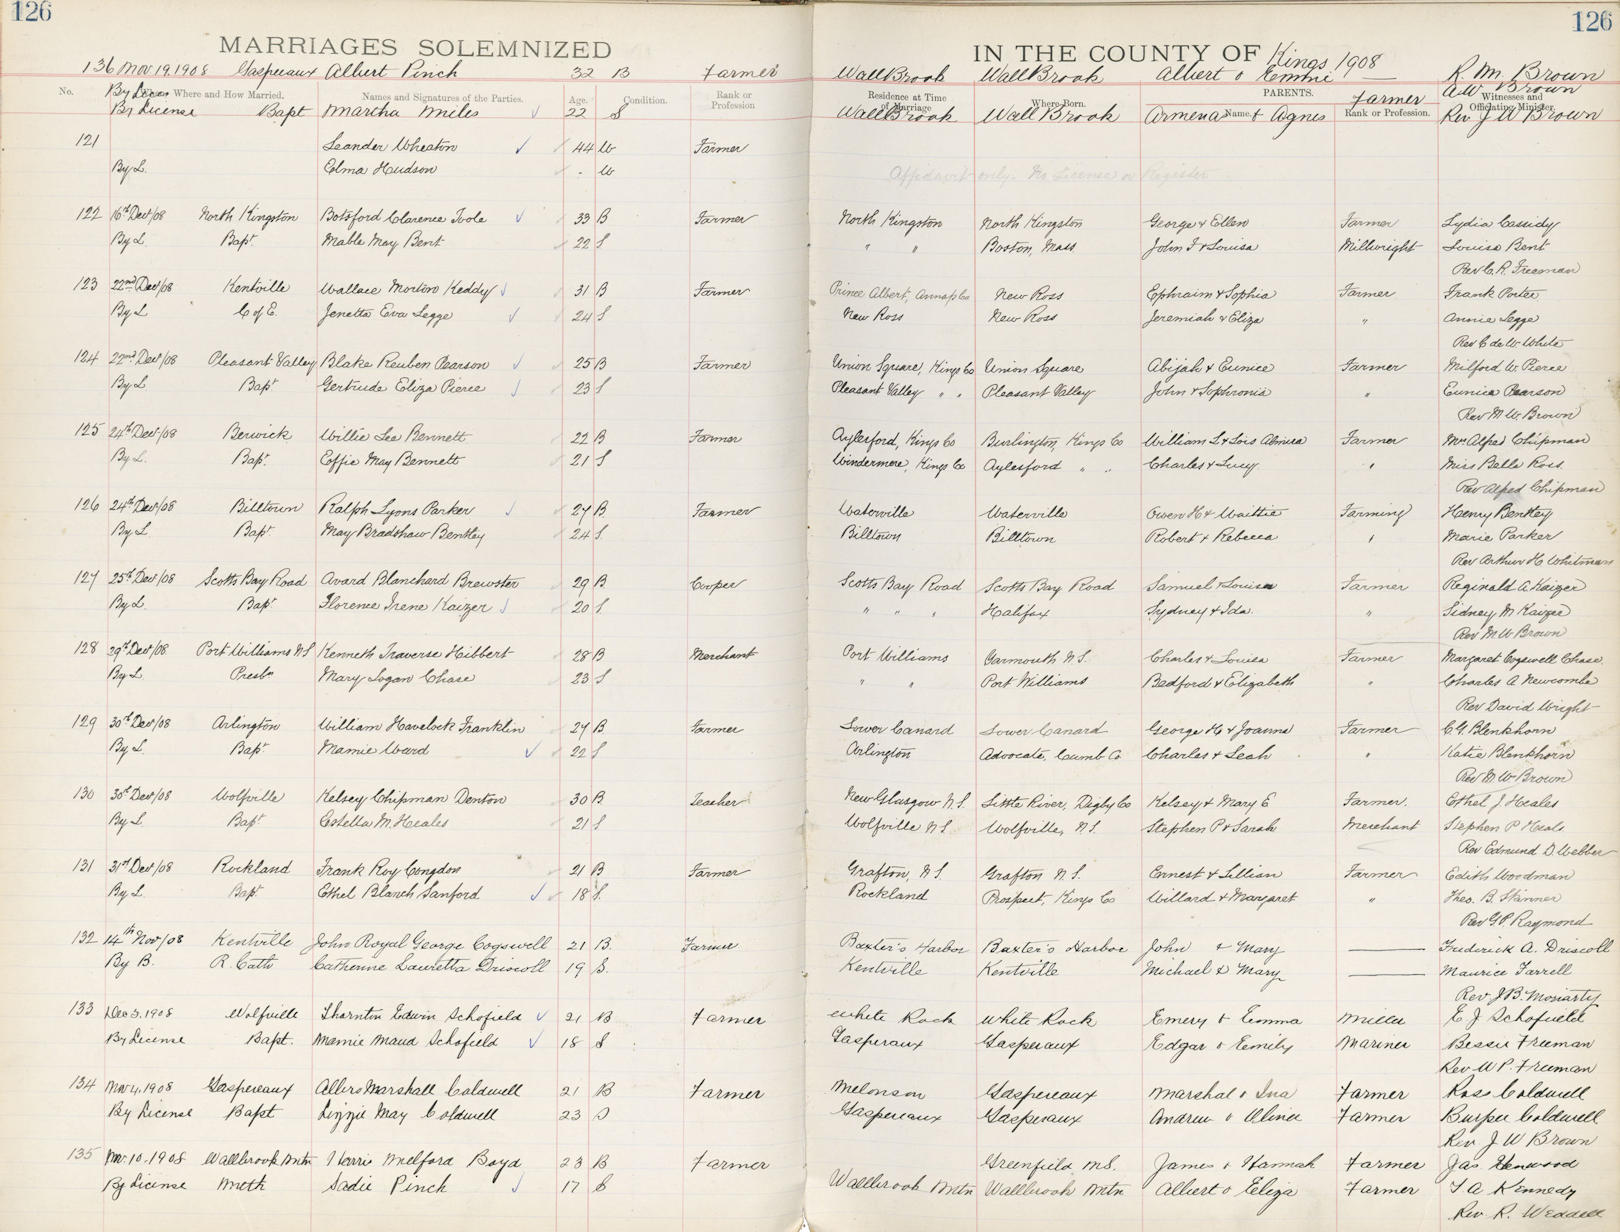 126
126
MARRIAGES SOLEMNIZED IN THE COUNTY OF Kings 1908
136 Nov 19, 1908 Gaspereaux Albert Pinch 32 B Farmer WallBrook WallBrook Albert & Emmie — R. M. Brown
A W Brown
No. When, Where and How Married. Names and Signatures of the Parties. Age. Condition. Rank or Profession Residence at Time of Marriage Where Born. PARENTS. Name. Rank or Profession. Witnesses and Officiating Minister.
By License Bapt Martha Miles 22 S WallBrook WallBrook Armenas & Agnes Farmer Rev J W Brown
121 Leander Wheaton 44 W Farmer
By L. Elma Hudson - W Affidavit only. No License or Register
122 16th Dec/08 North Kingston Botsford Clarence Toole 33 B Farmer North Kingston North Kingston George & Ellen Farmer Lydia Cassidy
By L. Bapt. Mable May Bent 22 S " " Boston, Mass John I & Louisa Millwright Louisa Bent
Rev C. R. Freeman
123 22nd Dec/08 Kentville Wallace Morton Keddy 31 B Farmer Prince Albert, Annap Co New Ross Ephraim & Sophia Farmer Frank Porter
By L C of E. Jenetta Eva Legge 24 S New Ross New Ross Jeremiah & Eliza " Annie Legge
Rev C de W White
124 22nd Dec/08 Pleasant Valley Blake Reuben Pearson 25 B Farmer Union Square, Kings Co Union Square Abijah & Eunice Farmer Milford W. Pierce
By L Bapt Gertrude Eliza Pierce 23 S Pleasant Valley " " Pleasant Valley John & Sophronia " Eunice Pearson
Rev M W Brown
125 24th Dec/08 Berwick Willie Lee Bennett 22 B Farmer Aylesford, Kings Co Burlington, Kings Co William L & Lois Almira Farmer Mrs Alfred Chipman
By L. Bapt. Effie May Bennett 21 S Windermere, Kings Co Aylesford " " Charles & Lucy " Miss Belle Ross
Rev Alfred Chipman
126 24th Dec/08 Billtown Ralph Lyons Parker 27 B Farmer Waterville Waterville Owen H & Waittie Farming Henry Bentley
By L. Bapt. May Bradshaw Bentley 24 S. Billtown Billtown Robert & Rebecca " Marie Parker
Rev Arthur H Whitman
127 25th Dec/08 Scotts Bay Road Avard Blanchard Brewster 29 B Cooper Scotts Bay Road Scotts Bay Road Samuel & Louisa Farmer Reginald A Kaizer
By L. Bapt Florence Irene Kaizer 20 S " " " Halifax Sydney & Ida " Sidney M Kaizer
Rev M W Brown
128 29th Dec/08 Port Williams NS Kenneth Traverse Hibbert 28 B Merchant Port Williams Yarmouth N.S. Charles & Louisa Farmer Margaret Cogswell Chase
By L. Presbn Mary Logan Chase 23 S " " Port Williams Bedford & Elizabeth " Charles A Newcombe
Rev David Wright
129 30th Dec/08 Arlington William Havelock Franklin 27 B Farmer Lower Canard Lower Canard George H & Joanna Farmer C. G. Blenkhorn
By L. Bapt Mamie Ward 22 S Arlington Advocate, Cumb Co Charles & Leah " Katie Blenkhorn
Rev M W Brown
130 30th Dec/08 Wolfville Kelsey Chipman Denton 30 B Teacher New Glasgow N.S. Little River, Digby Co Kelsey & Mary E Farmer. Ethel J Heales
By L. Bapt Estella M. Heales 21 S Wolfville N S Wolfville, N.S. Stephen P & Sarah Merchant Stephen P Heals
Rev Edmund D. Webber
131 31st Dec/08 Rockland Frank Roy Congdon 21 B Farmer Grafton, N.S. Grafton N.S. Ernest & Lillian Farmer Edith Woodman
By L. Bapt Ethel Blanch Sanford 18 S. Rockland Prospect, Kings Co Willard & Margaret " Theo. B. Skinner
Rev G. P. Raymond
132 14th Nov/08 Kentville John Royal George Cogswell 21 B. Farmer Baxter's Harbor Baxter's Harbor John & Mary — Frederick A. Driscoll
By B. R. Cath Catherine Lauretta Driscoll 19 S. Kentville Kentville Michael & Mary — Maurice Farrell
Rev J B. Moriarty
133 Dec 3, 1908 Wolfville Thornton Edwin Schofield 21 B Farmer White Rock White Rock Emery & Emma Miller E J Schofield
By License Bapt. Mamie Maud Schofield 18 S Gaspereaux Gaspereaux Edgar & Emily Mariner Bessie Freeman
Rev W P. Freeman
134 Nov 4, 1908 Gaspereaux Marshall Coldwell 21 B Farmer Melonson Gaspereaux Marshal & Ina Farmer Ross Coldwell
By License Bapt Lizzie May Coldwell 23 S Gaspereaux Gaspereaux Andrew & Farmer Burpee Coldwell
Rev J W Brown
135 Nov. 10, 1908 Wallbrook Mtn Harris Melford Boyd 23 B Farmer Greenfield N.S. James & Hannah Farmer Jas
By License Meth Sadie Pinch 17 S Wallbrook Mtn Wallbrook Mtn Albert & Eliza Farmer T A Kennedy
Rev. R. Weddell